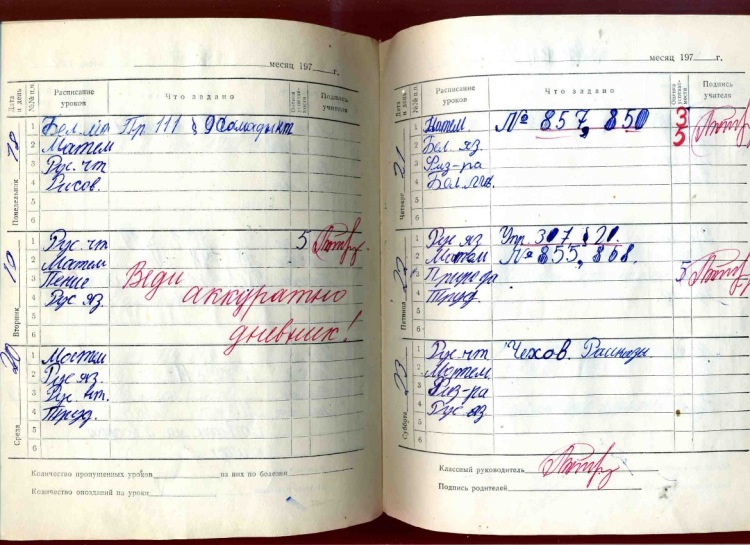 месяц 197 г.
Дата и день №№ п.п. Расписание уроков Что задано Оценка успеваемости Подпись учителя
Понедельник 18
1 Бел. Пр. 111 § 9
2 Матем
3 Рус. чт
4 Рисов.
5
6
Вторник 19
1 Рус. чт 5
2 Матем
3 Пение Веди
4 Рус яз. аккуратно
5 дневник!
6
Среда 20
1 Матем
2 Рус яз.
3 Рус. чт.
4 Труд.
5
6
Количество пропущенных уроков из них по болезни
Количество опозданий на уроки
месяц 197 г.
Дата и день №№ п.п. Расписание уроков Что задано Оценка успеваемости Подпись учителя
Четверг 21
1 Матем. № 857, 850 3 5
2 Бел. яз.
3 Физ-ра
4 Бел.
5
6
Пятница 22
1 Рус яз Упр. 307 § 21.
2 Матем № 855, 868.
3 Природа 5
4 Труд.
5
6
Суббота 23
1 Рус. чт Чехов. Рассказы
2 Матем.
3 Физ-ра
4 Рус яз
5
6
Классный руководитель
Подпись родителей